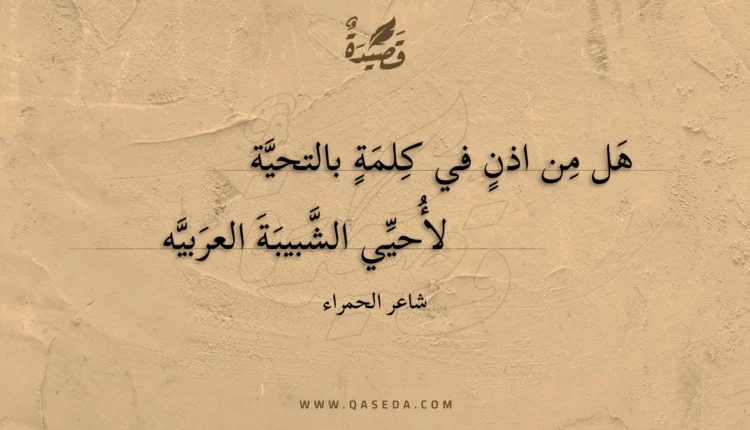 قَصِيْدَةٌ
هَل مِن اذنٍ في كِلمَةٍ بالتحيَّة
لأُحيِّي الشَّبيبَةَ العرَبيَّه
شاعر الحمراء
WWW.QASEDA.COM